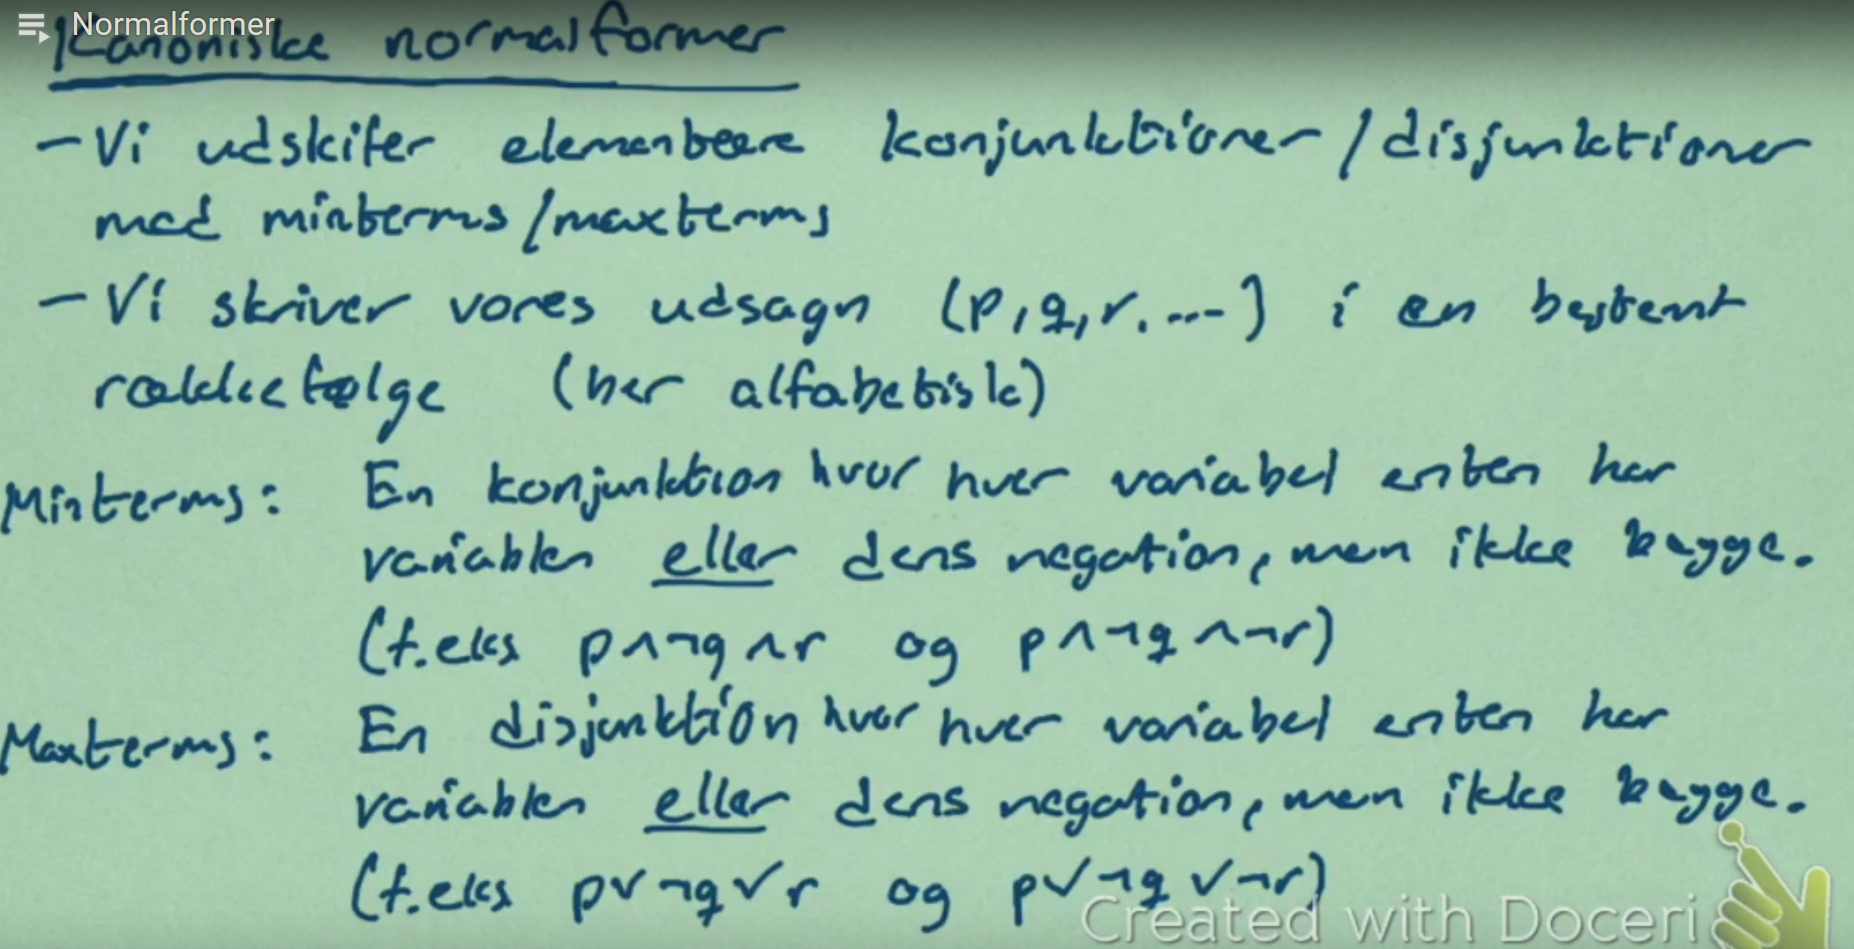 Normalformer
Kanoniske normalformer
- Vi udskifer elementære konjunktioner/disjunktioner
med minterms/maxterms
- Vi skriver vores udsagn (p,q,r,...) i en bestemt
rækkefølge (her alfabetisk)
Minterms: En konjunktion hvor hver variabel enten har
variablen eller dens negation, men ikke begge.
(f.eks p∧¬q∧r og p∧¬q∧¬r)
Maxterms: En disjunktion hvor hver variabel enten har
variablen eller dens negation, men ikke begge.
(f.eks p∨¬q∨r og p∨¬q∨¬r)
Created with Doceri